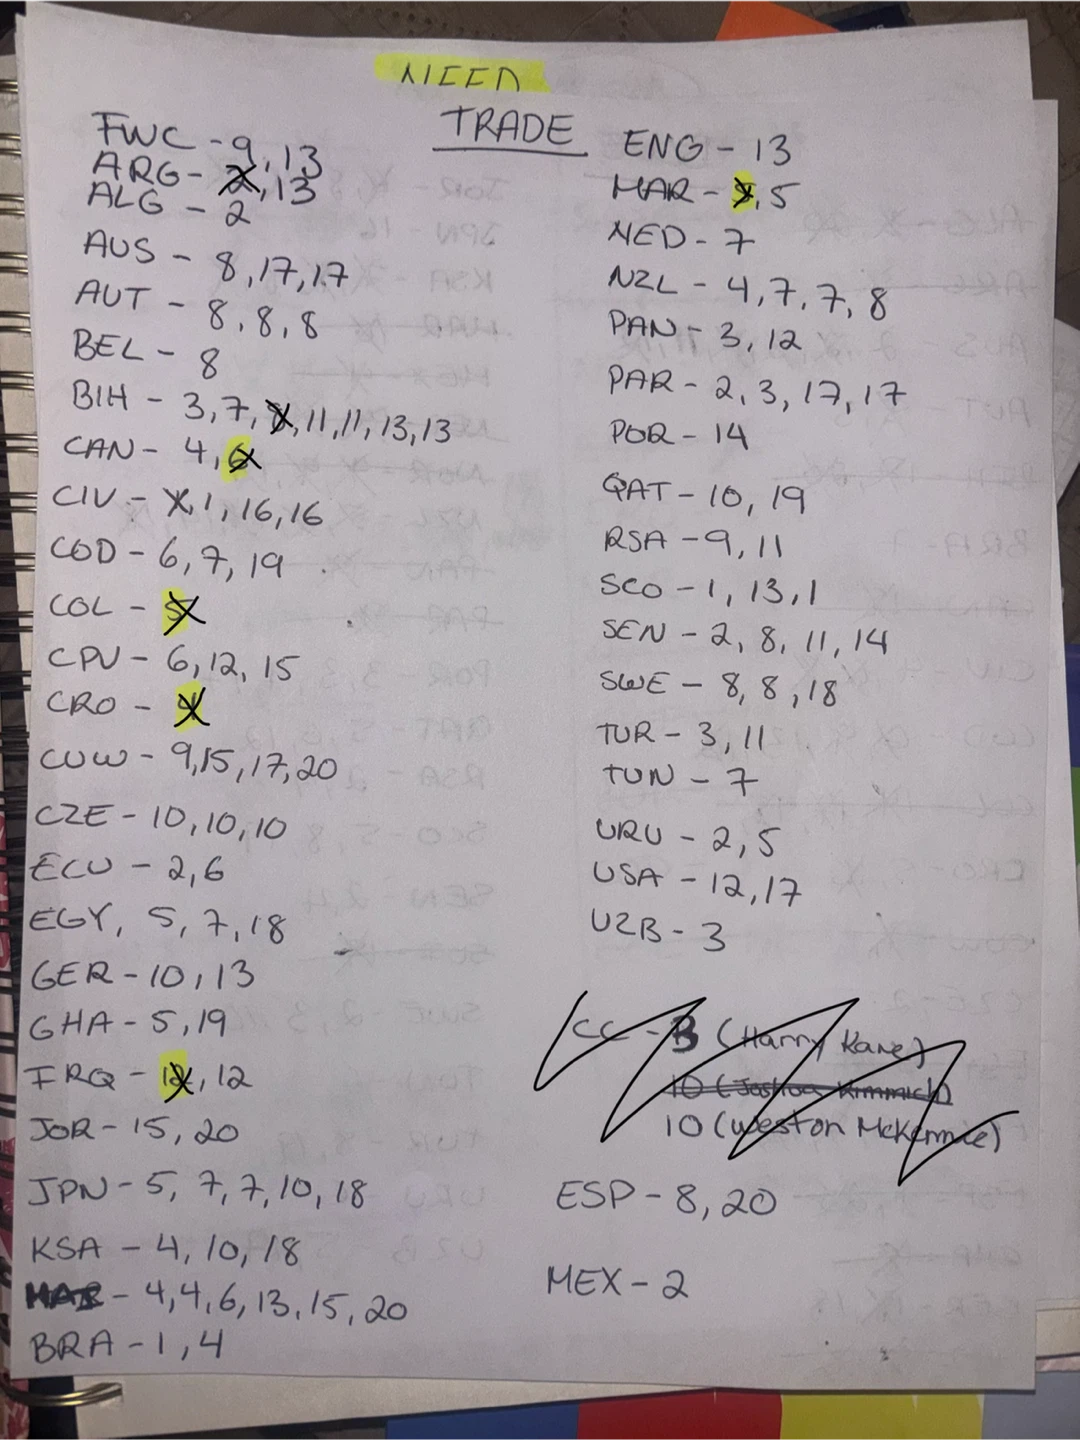 NEED
TRADE
FWC - 9, 13
ARG - 2, 13
ALG - 2
AUS - 8, 17, 17
AUT - 8, 8, 8
BEL - 8
BIH - 3, 7, 8, 11, 11, 13, 13
CAN - 4, 6
CIV - X, 1, 16, 16
COD - 6, 7, 19
COL - 5
CPV - 6, 12, 15
CRO -
CUW - 9, 15, 17, 20
CZE - 10, 10, 10
ECU - 2, 6
EGY, 5, 7, 18
GER - 10, 13
GHA - 5, 19
IRQ - 12, 12
JOR - 15, 20
JPN - 5, 7, 7, 10, 18
KSA - 4, 10, 18
- 4, 4, 6, 13, 15, 20
BRA - 1, 4
ENG - 13
MAR - , 5
NED - 7
NZL - 4, 7, 7, 8
PAN - 3, 12
PAR - 2, 3, 17, 17
POR - 14
QAT - 10, 19
RSA - 9, 11
SCO - 1, 13, 1
SEN - 2, 8, 11, 14
SWE - 8, 8, 18
TUR - 3, 11
TUN - 7
URU - 2, 5
USA - 12, 17
UZB - 3
CC - B (Harry Kane)
10 (Joshua Kimmich)
10 (Weston McKennie)
ESP - 8, 20
MEX - 2